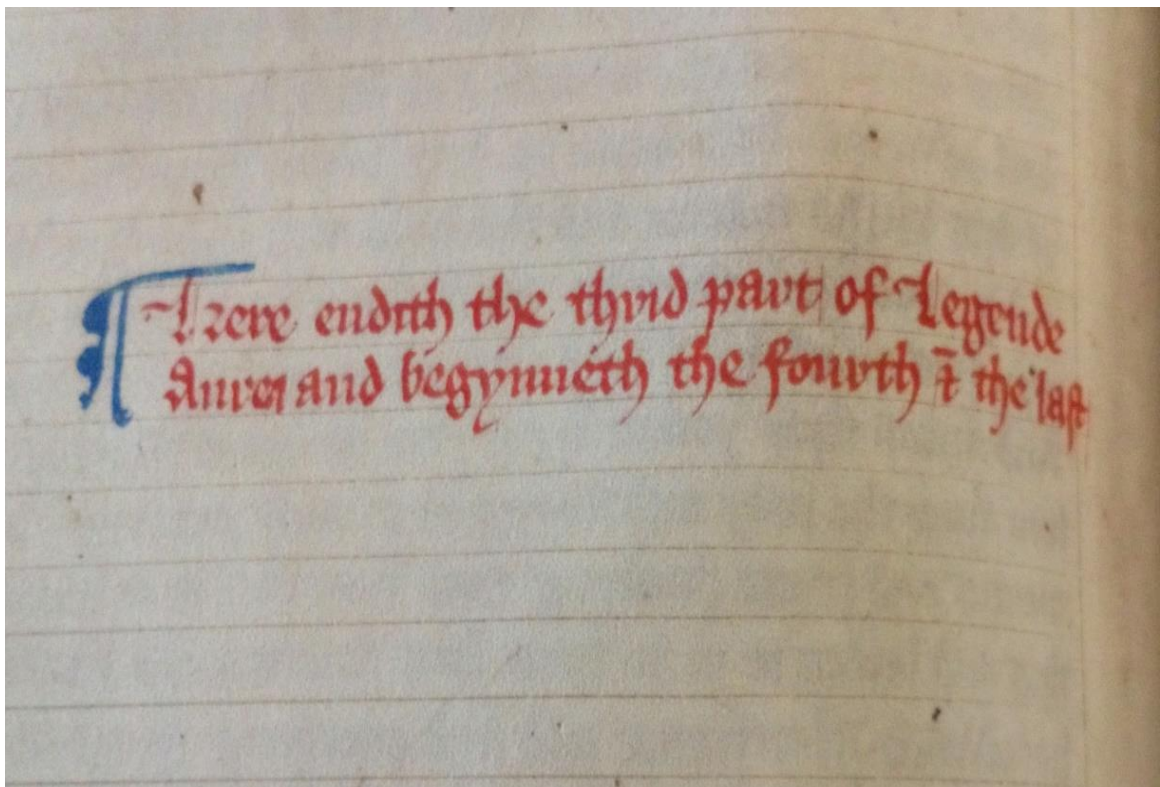 ¶ Here endith the thrid part of Legende
Aurei and begynneth the fourth ⁊̄ the last